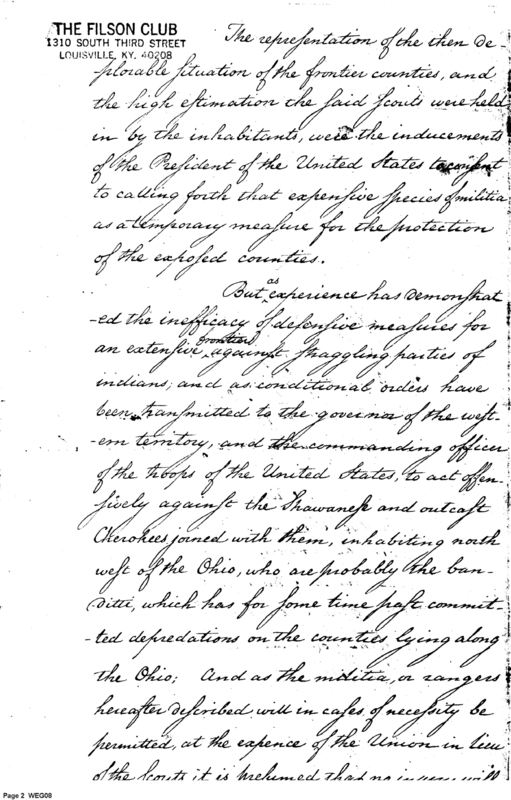 THE FILSON CLUB
1310 SOUTH THIRD STREET
LOUISVILLE, KY. 40208
The representation of the then de-
plorable situation of the frontier counties, and
the high estimation the said scouts were held
in by the inhabitants, were the inducements
of the President of the United States to consent
to calling forth that expensive species of militia
as a temporary measure for the protection
of the exposed counties.
But as experience has demonstrat
-ed the inefficacy of defensive measures for
an extensive frontier against straggling parties of
indians; and as conditional orders have
been transmitted to the governor of the west-
-ern territory, and the commanding officer
of the troops of the United States, to act offen-
sively against the Shawanese and outcast
Cherokees joined with them, inhabiting north
west of the Ohio, who are probably the ban-
ditti, which has for some time past commit-
-ted depredations on the counties lying along
the Ohio; And as the militia, or rangers
hereafter described, will in cases of necessity be
permitted, at the expence of the Union in lieu
of the scouts it is presumed that no
Page 2 WEG08